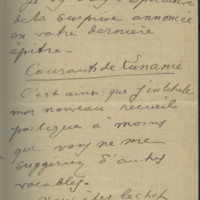 de la surprise annoncée
en votre dernière
épitre.
Courants de Lunanie.
C'est ainsi que j'intitule
mon nouveau recueil
poétique à moins
que vous ne me
suggériez d'autres
vocables.